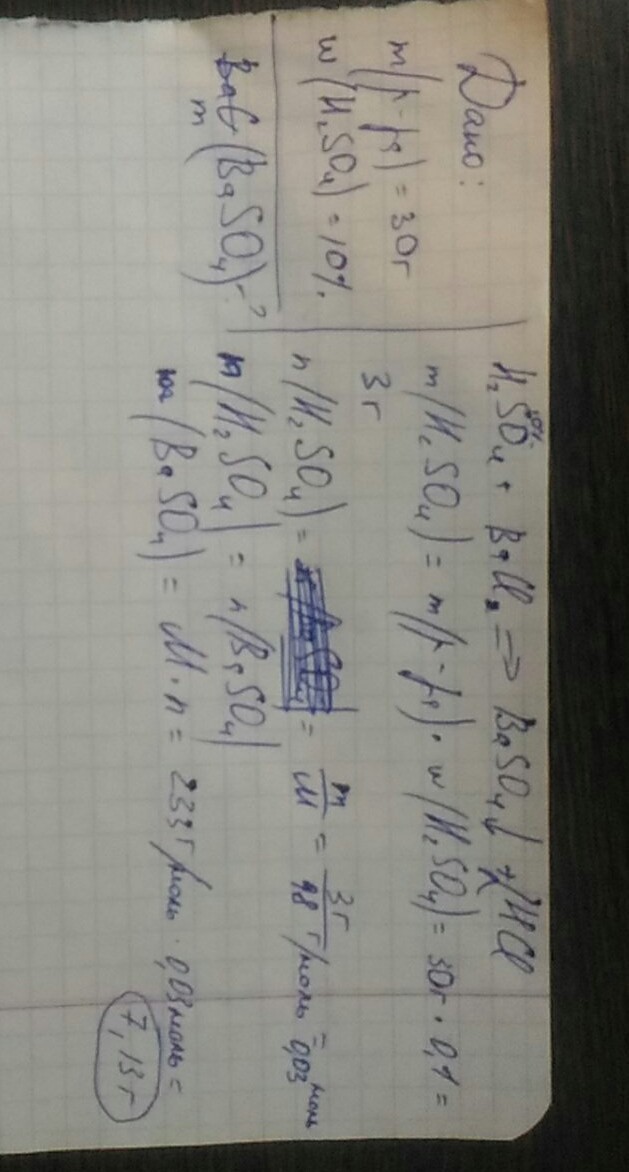 Дано:
m(р-ра) = 30г
w(H₂SO₄) = 10%
m(BaSO₄) - ?
H₂SO₄ + BaCl₂ => BaSO₄↓ + 2HCl
m(H₂SO₄) = m(р-ра) · w(H₂SO₄) = 30г · 0,1 =
3г
n(H₂SO₄) = = m/M = 3г/98 г/моль = 0,03 моль
n(H₂SO₄) = n(BaSO₄)
m(BaSO₄) = M · n = 233 г/моль · 0,03 моль =
7,13 г